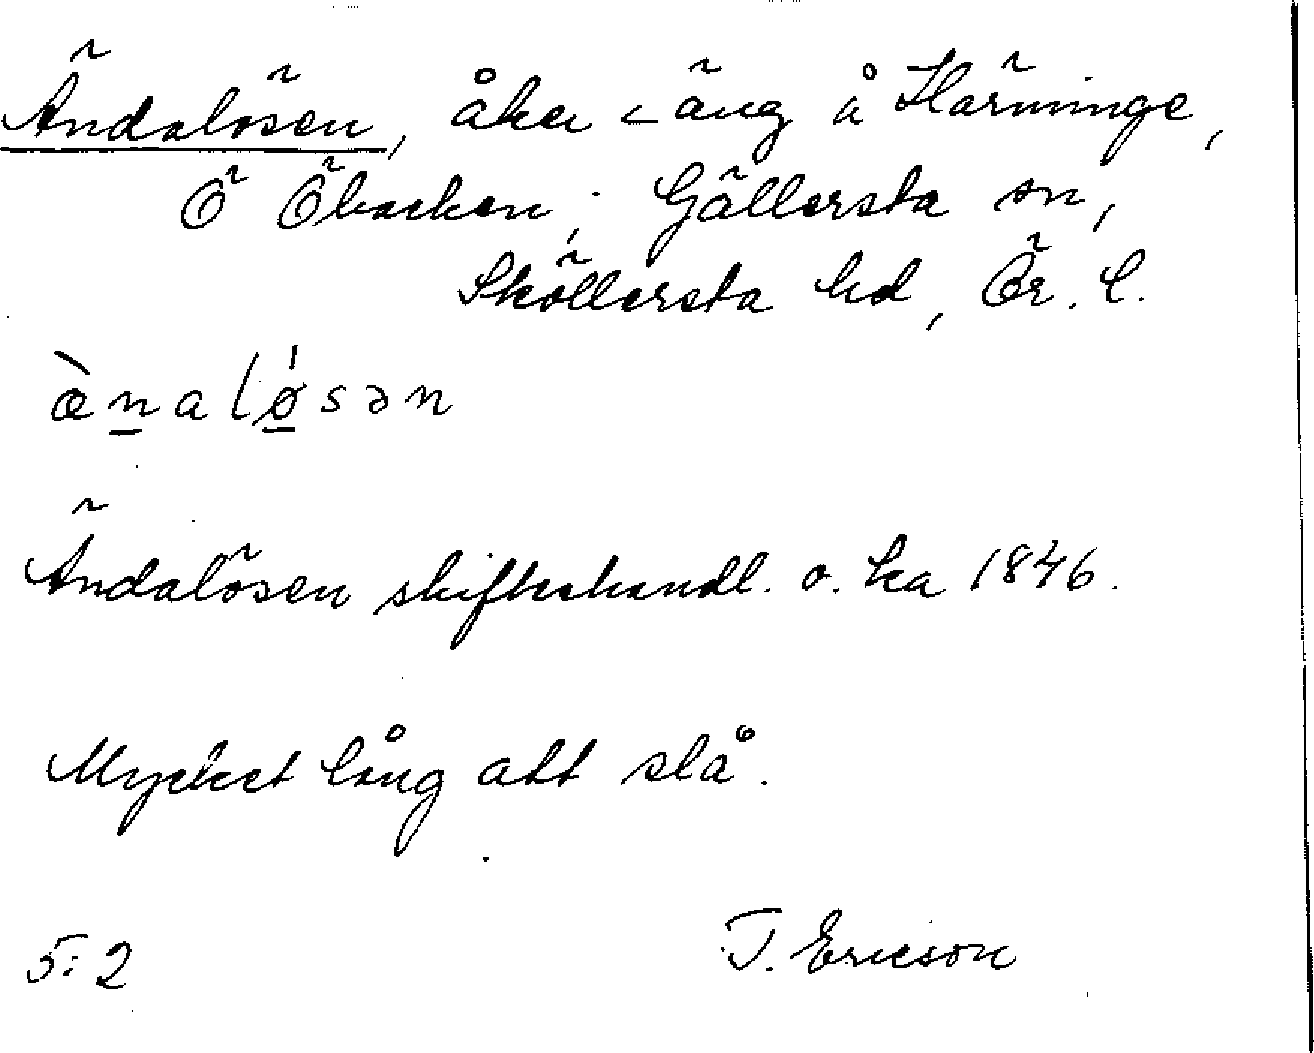 Ändalösen, åker < äng å Härminge,
Ö Öbacken, Gällersta sn,
Sköllersta hd, Ör. l.
æ̀n̲alǿ̲sən
Ändalösen skifteshandl. o. ka 1846.
Mycket lång att slå.
5:2 T. Ericson